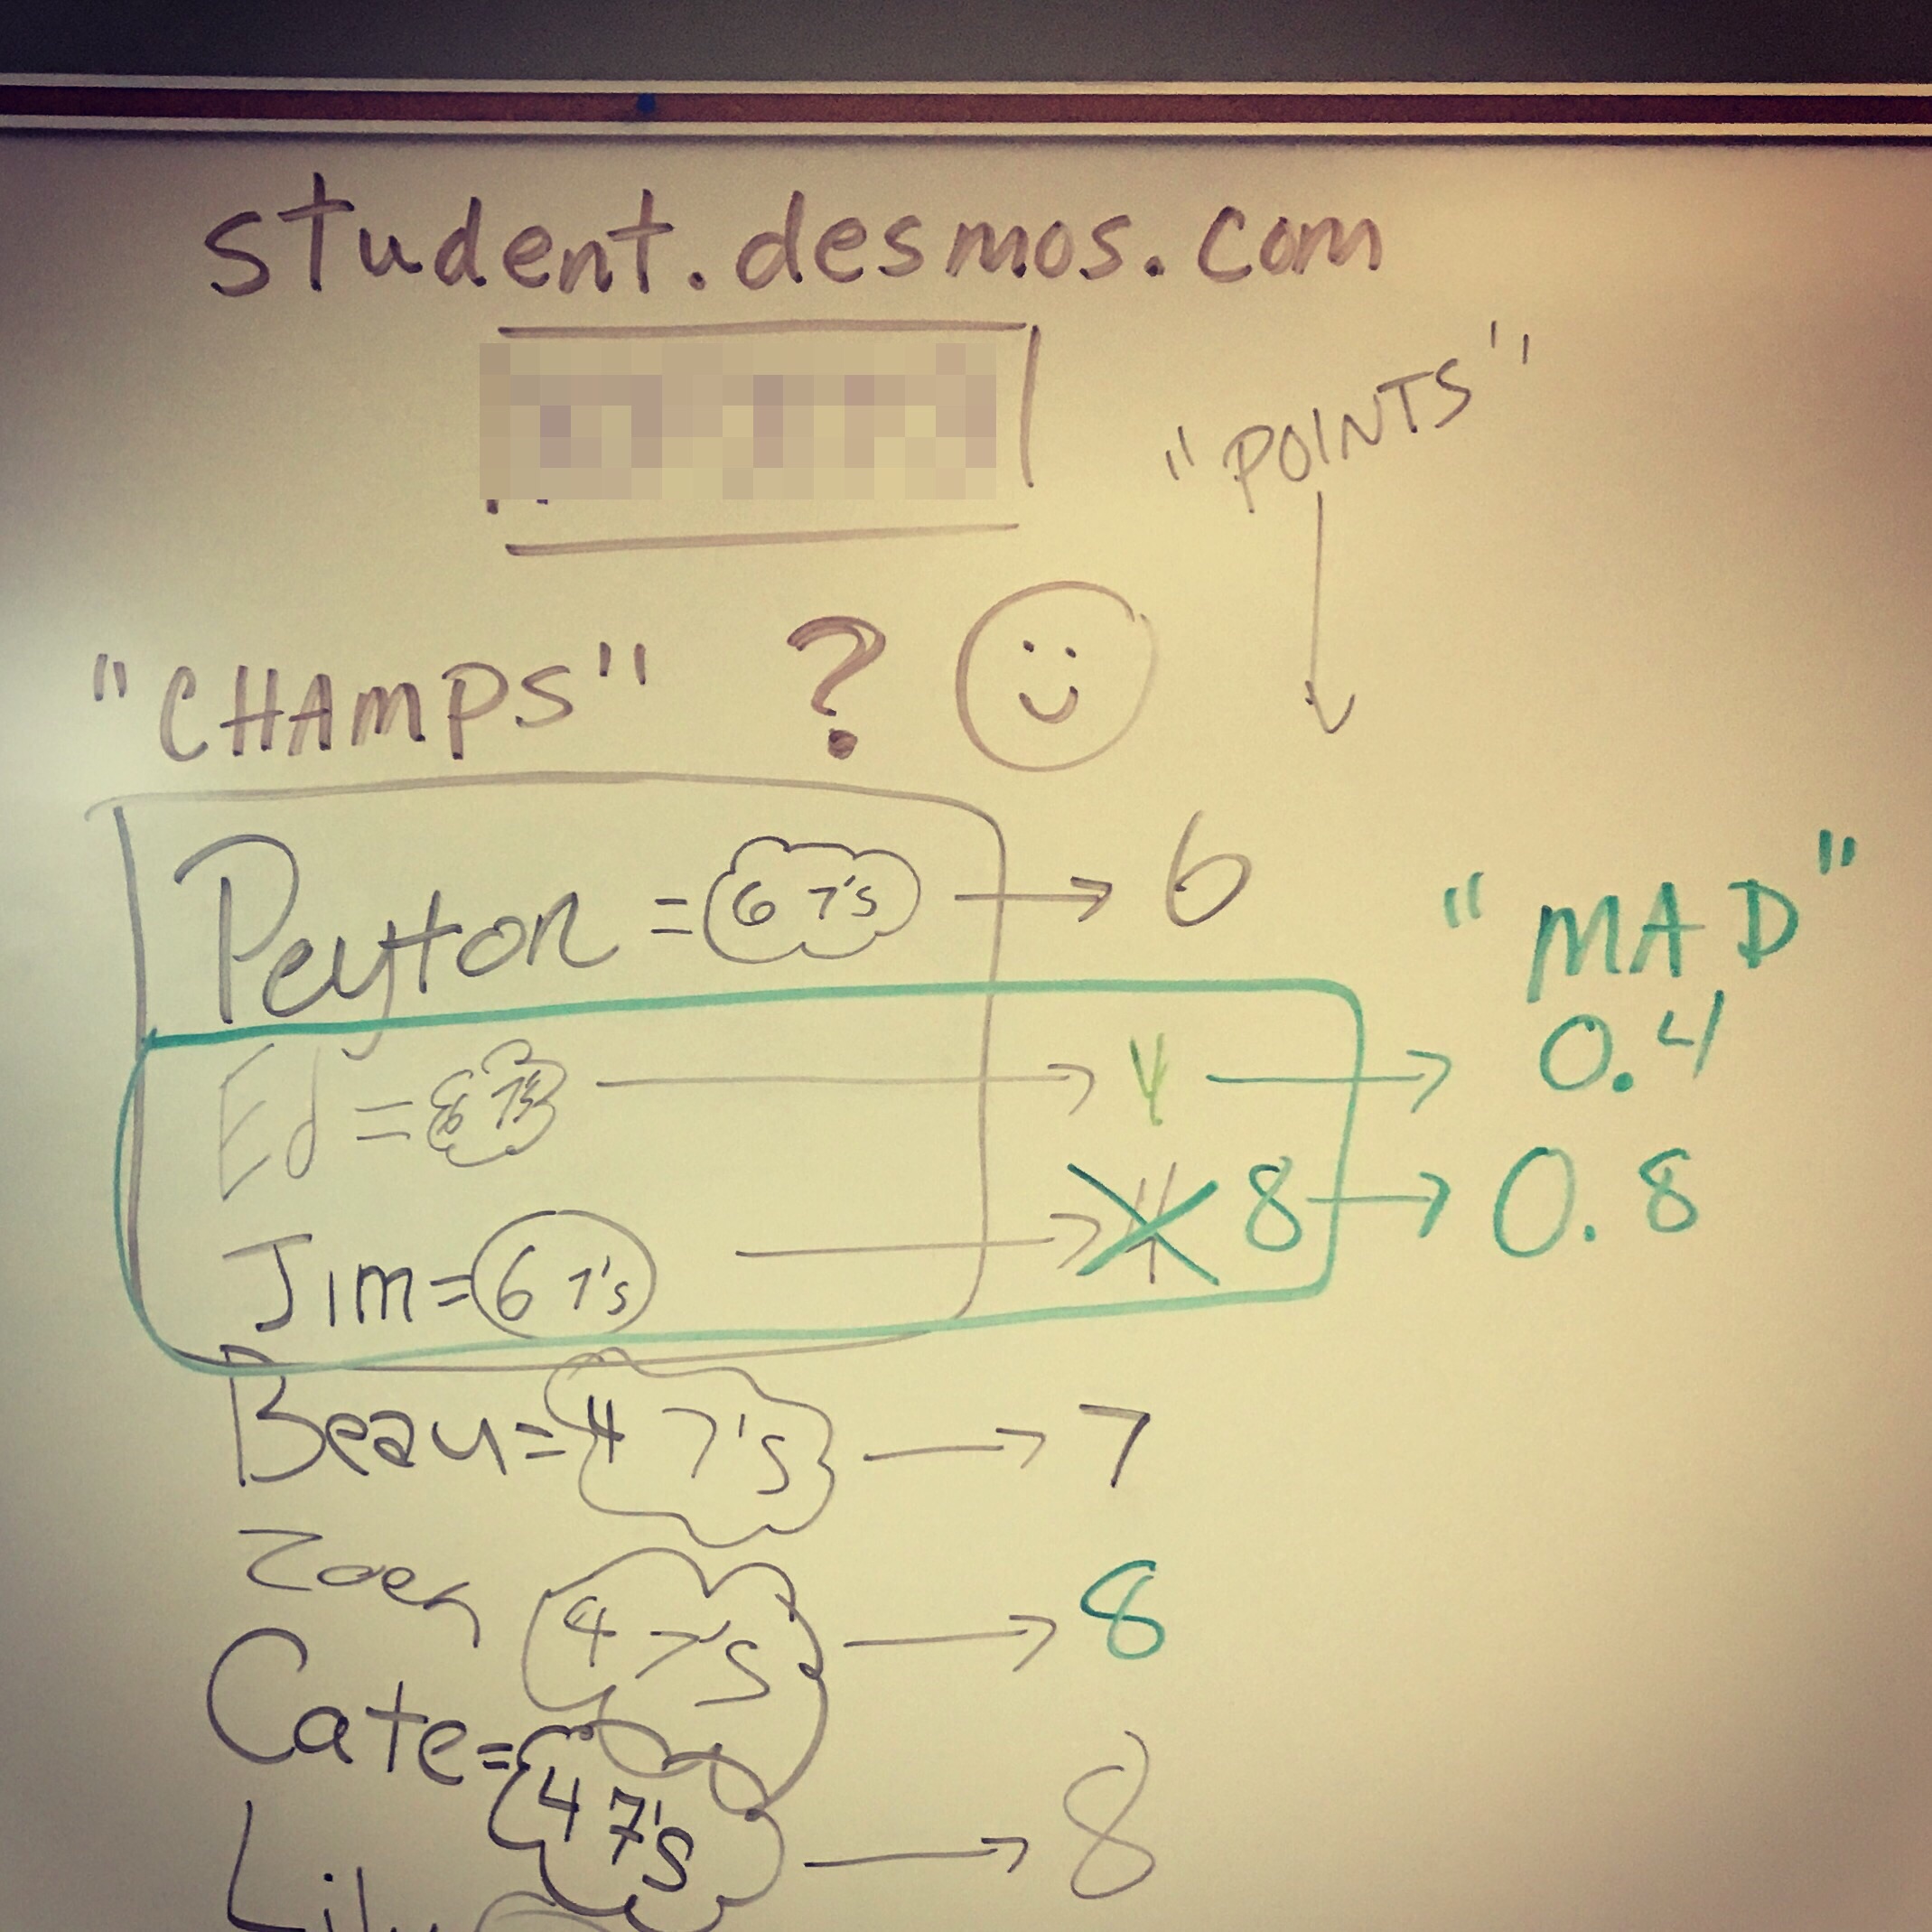 student.desmos.com
"POINTS"
"CHAMPS" ?
Peyton = 6 7's → 6
"MAD"
Ed = 6 7's → 4 → 0.4
Jim = 6 7's → 4 8 → 0.8
Beau = 4 7's → 7
Zoen 4 7's → 8
Cate = 4 7's → 8
Lily